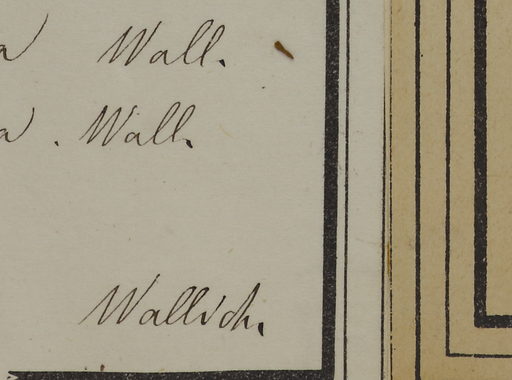 a Wall.
a. Wall.
Wallich.